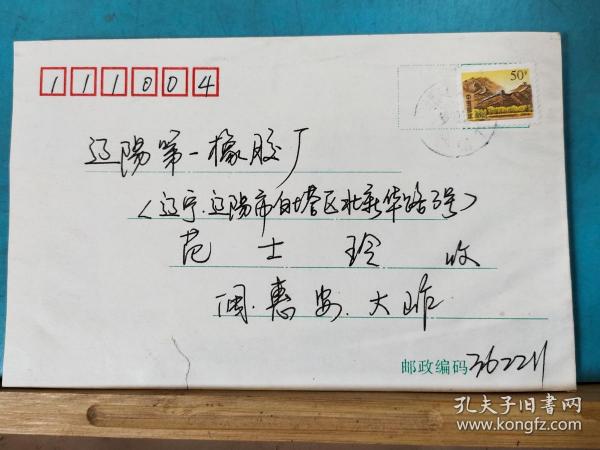 111004
50分
辽陽第一橡胶厂
(辽宁.辽陽市白塔区北新华路3号)
范士玲 收
闽.惠安.大岞
邮政编码 362211
孔夫子旧书网
www.kongfz.com